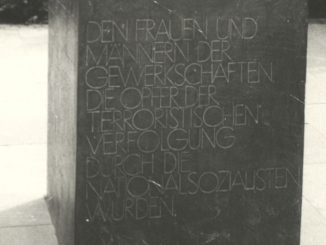 DEN FRAUEN UND
MÄNNERN DER
GEWERKSCHAFTEN
DIE OPFER DER
TERRORISTISCHEN
VERFOLGUNG
DURCH DIE
NATIONALSOZIALISTEN
WURDEN.